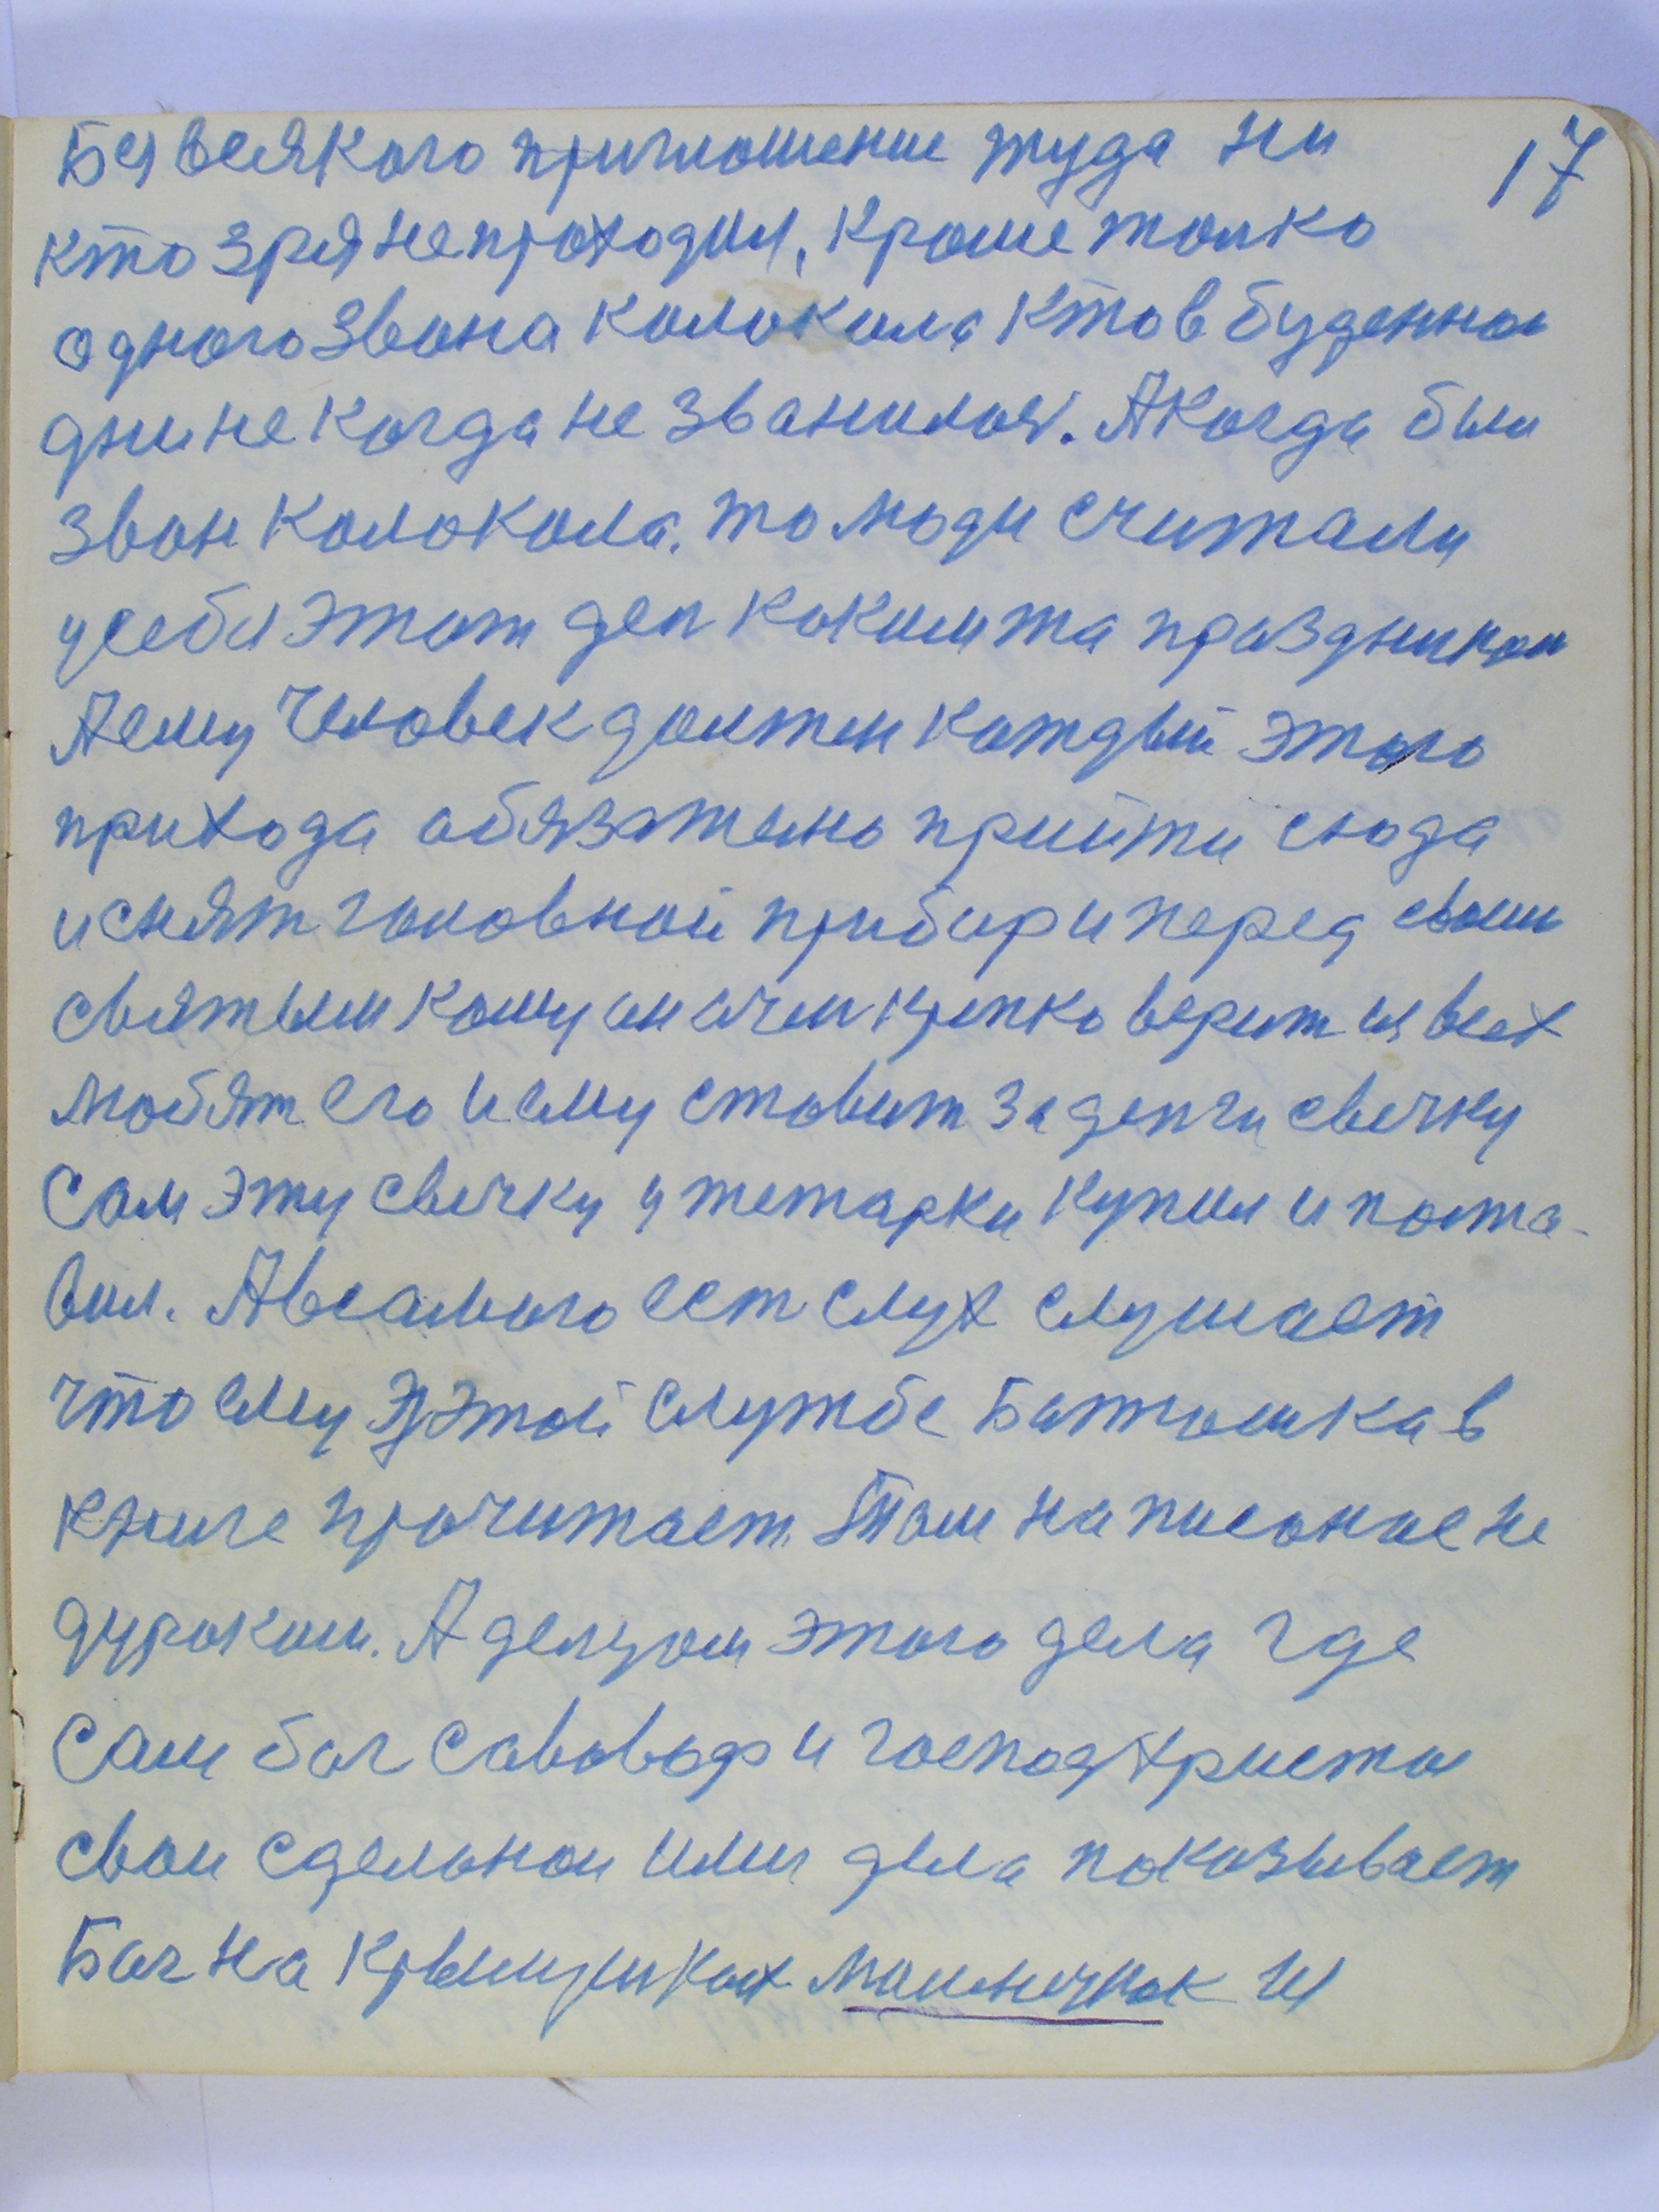 17
Без всякого приглошение туда ни
кто зря непроходил, кроме толко
одного звона колокола кто в буденнои
дни не когда не званился. А когда был
звон колокола. то люди считали
у себя этот ден каким та праздником
А ему человек должен каждый этого
прихода обязателно прийти сюда
и снят головной прибор и перед своим
святым кому он очен крепко верит из всех
любят его и ему ставит за денги свечку
Сам эту свечку у тетарки купил и поста-
вил. А в самого ест слух слушает
что ему в этой службе Батюшка в
книге прочитает. Там написаное не
дураком. А делцом этого дела где
Сам бог Саваовф и господ христос
свои сделанои ими дела показывает
Бог на